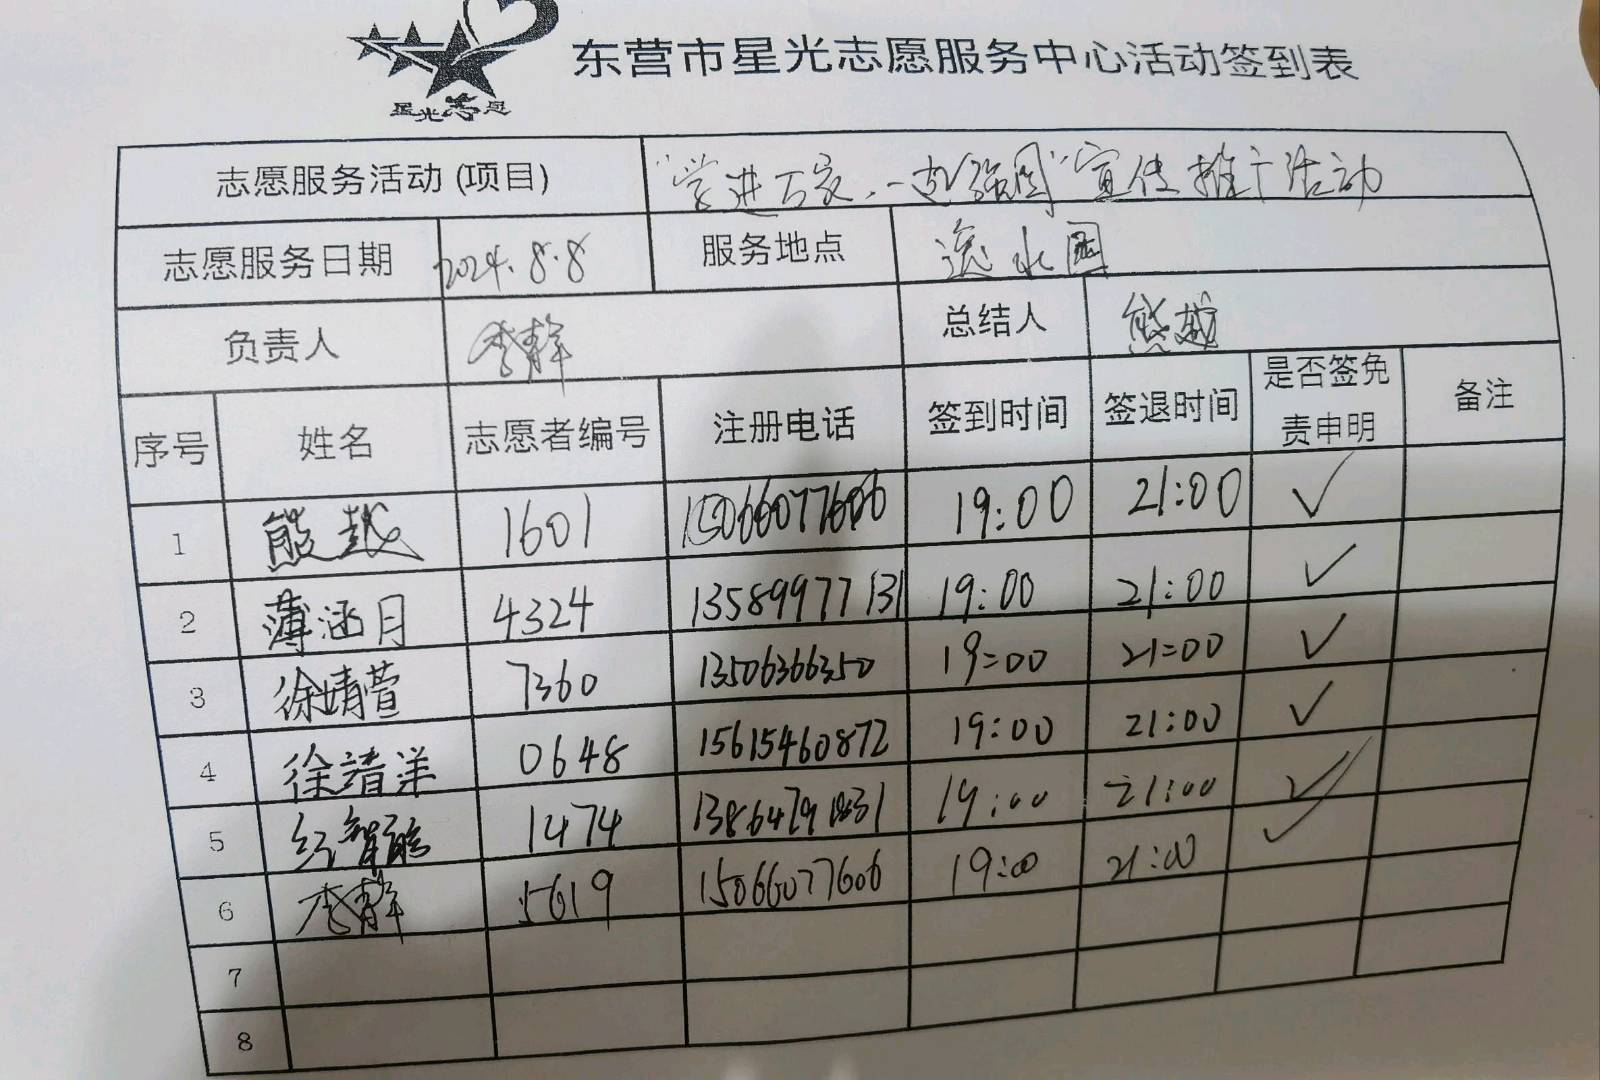 星光志愿
东营市星光志愿服务中心活动签到表
志愿服务活动(项目) "学进万家,一起强国"宣传推广活动
志愿服务日期 2024.8.8 服务地点 逸水园
负责人 李静 总结人 熊越
序号 姓名 志愿者编号 注册电话 签到时间 签退时间 是否签免责申明 备注
1 熊越 1601 15066077606 19:00 21:00 ✓
2 薄涵月 4324 13589977131 19:00 21:00 ✓
3 徐婧萱 7360 13506366350 19:00 21:00 ✓
4 徐靖洋 0648 15615460872 19:00 21:00 ✓
5 1474 19:00 21:00 ✓
6 李静 5619 15066077606 19:00 21:00 ✓
7
8